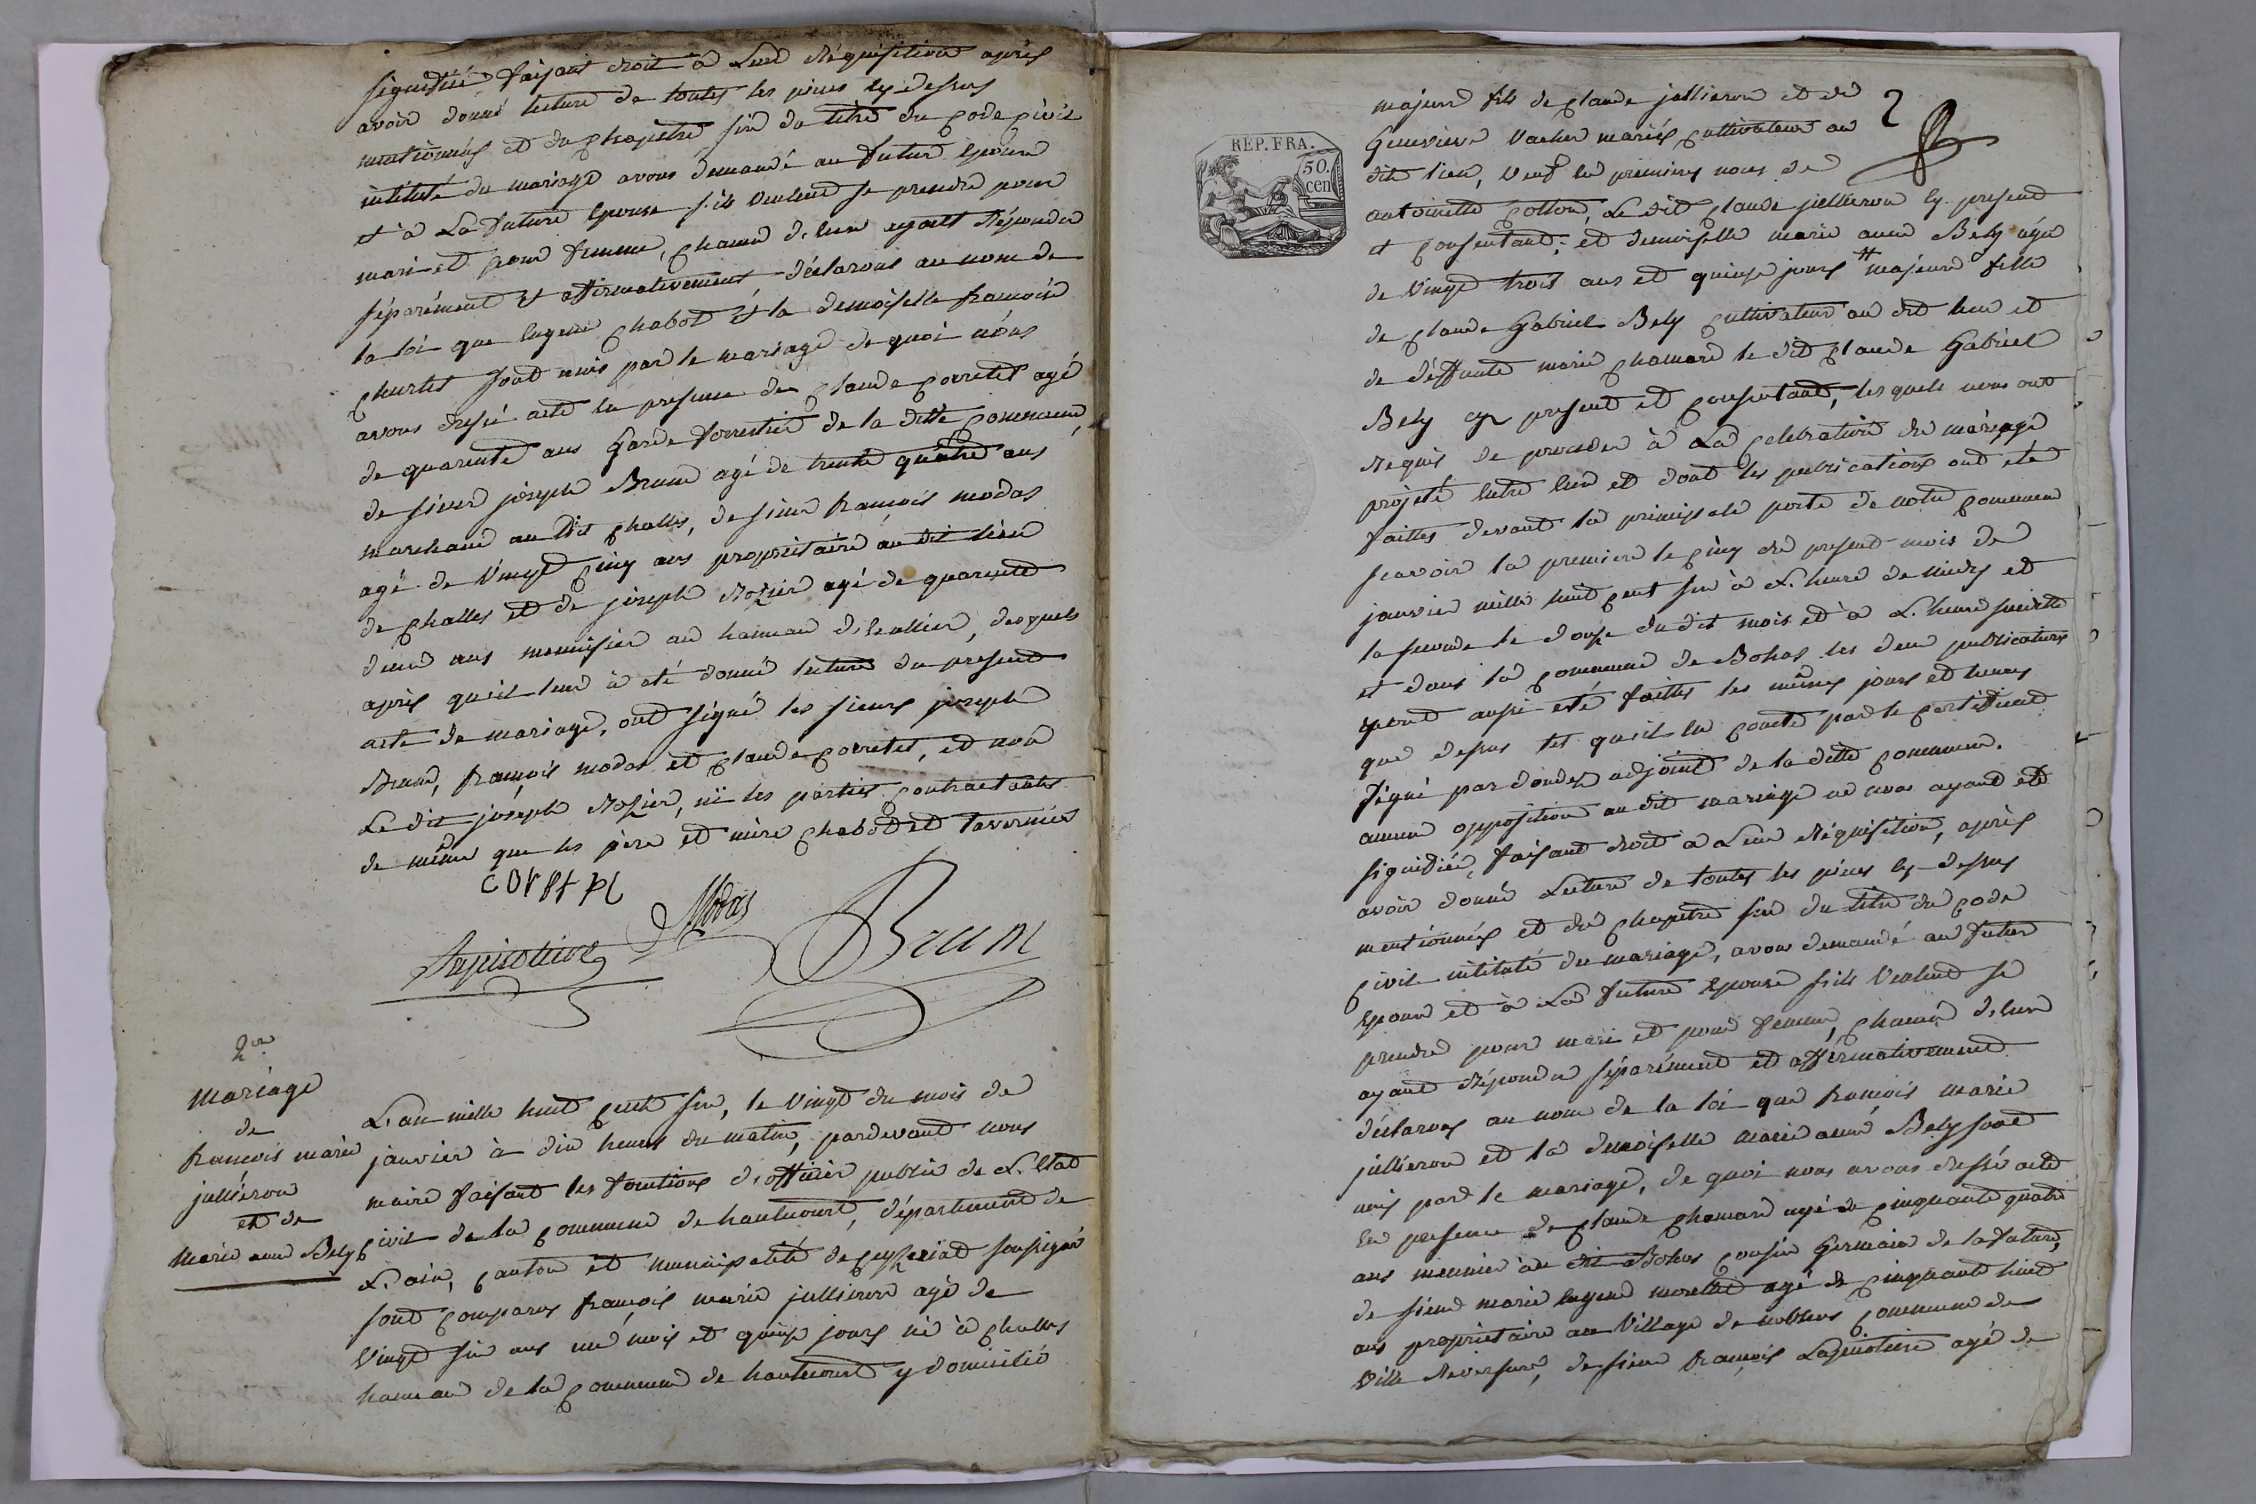 signifiée faisant droit à leur réquisition après
avoir donné lecture de toutes les pièces cy dessus
mentionnées et du chapitre six du titre du code civil
intitulé du mariage avons demandé au futur époux
et à la future épouse s'ils veulent se prendre pour
mari et pour femme, chacun d'eux ayant répondu
séparément et affirmativement déclarons au nom de
la loi que eugene chabot et la demoiselle françoise
churlet sont unis par le mariage de quoi nous
avons dressé acte en presence de claude corretet agé
de quarente ans Garde forrestier de la ditte commune,
de sieur joseph Brun agé de trente quatre ans
marchand au dit challes, de sieur françois modas
agé de vingt cinq ans propriétaire au dit lieu
de challes et de joseph Rozier agé de quarente
deux ans menuisier au hameau de , desquels
après qu'il leur à été donné lecture du present
acte de mariage, ont signé les sieurs joseph
Brun, françois modas et claude corretet, et non
Le dit joseph Rozier, ni les parties contractantes
de même que les père et mère chabot et tavernier
Modas
Brun
2me
Mariage
de
françois marie
julliéron
et de
Marie anne Bely
L'an mille huit cent six, le vingt du mois de
janvier à dix heures du matin, pardevant nous
maire faisant les fonctions d'officier public de L'Etat
civil de la commune de hautecourt, département de
L'ain, canton et municipalité de ceyzeriat soussigné
sont comparus françois marie jullieron agé de
vingt six ans un mois et quinze jours né à challes
hameau de la commune de hautecourt y domicilié
2
REP. FRA.
50.
cen
majeur fils de claude jullieron et de
Genevieve vacher mariés cultivateur au
dit lieu, veuf en premieres noces de
antoinette cotton, Le dit claude jullieron cy present
et consentant; et demoiselle marie anne Bely agée
de vingt trois ans et quinze jours # majeure fille
de claude Gabriel Bely cultivateur au dit lieu et
de déffunte marie chamard le dit claude Gabriel
Bely cy present et consentant, lesquels nous ont
requis de proceder à La celebration du mariage
projeté entre eux et dont les publications ont été
faittes devant la principale porte de notre commune
scavoir la premiere le cinq du present mois de
janvier mille huit cent six à L'heure de midy et
la seconde le douze du dit mois et à L'heure susditte
et dans la commune de Bohas les deux publications
ayant aussi été faittes les mêmes jours et heures
que dessus tel qu'il en conste par le certificat
signé par adjoint de la ditte commune.
aucune opposition au dit mariage ne nous ayant été
signifiée, faisant droit à Leur réquisition, après
avoir donné Lecture de toutes les pièces cy-dessus
mentionnées et du chapitre six du titre du code
civil intitulé du mariage, avons demandé au futur
époux et à La future épouse s'ils veulent se
prendre pour mari et pour femme, chacun d'eux
ayant répondu séparément et affirmativement
déclarons au nom de la loi que françois marie
jullieron et la demoiselle marie anne Bely sont
unis par le mariage, de quoi nous avons dressé acte
en presence de claude chamard agé de cinquante quatre
ans meunier au dit Bohas cousin Germain de la future,
de sieur marie eugene morellet agé de cinquante huit
ans propriétaire au village de noblens commune de
ville Reversure, de sieur françois Lapinotiere agé de